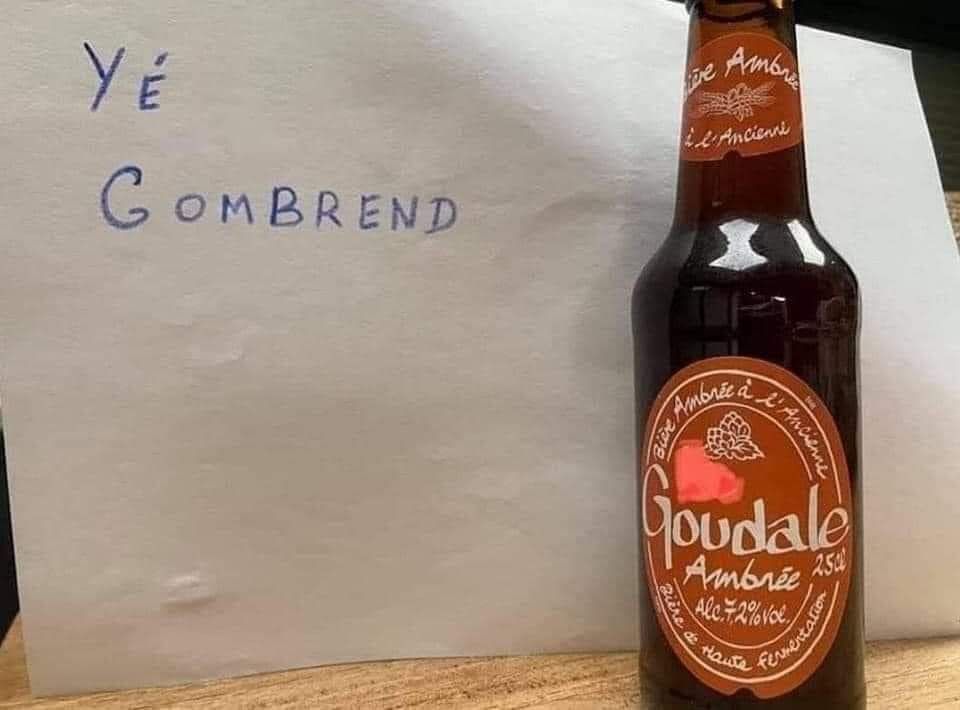 YÉ
GOMBREND
ière Ambrée
à l'Ancienne
Bière Ambrée à l'Ancienne
Goudale
Ambrée 25cl
Alc.7,2%vol.
Bière de Haute Fermentation